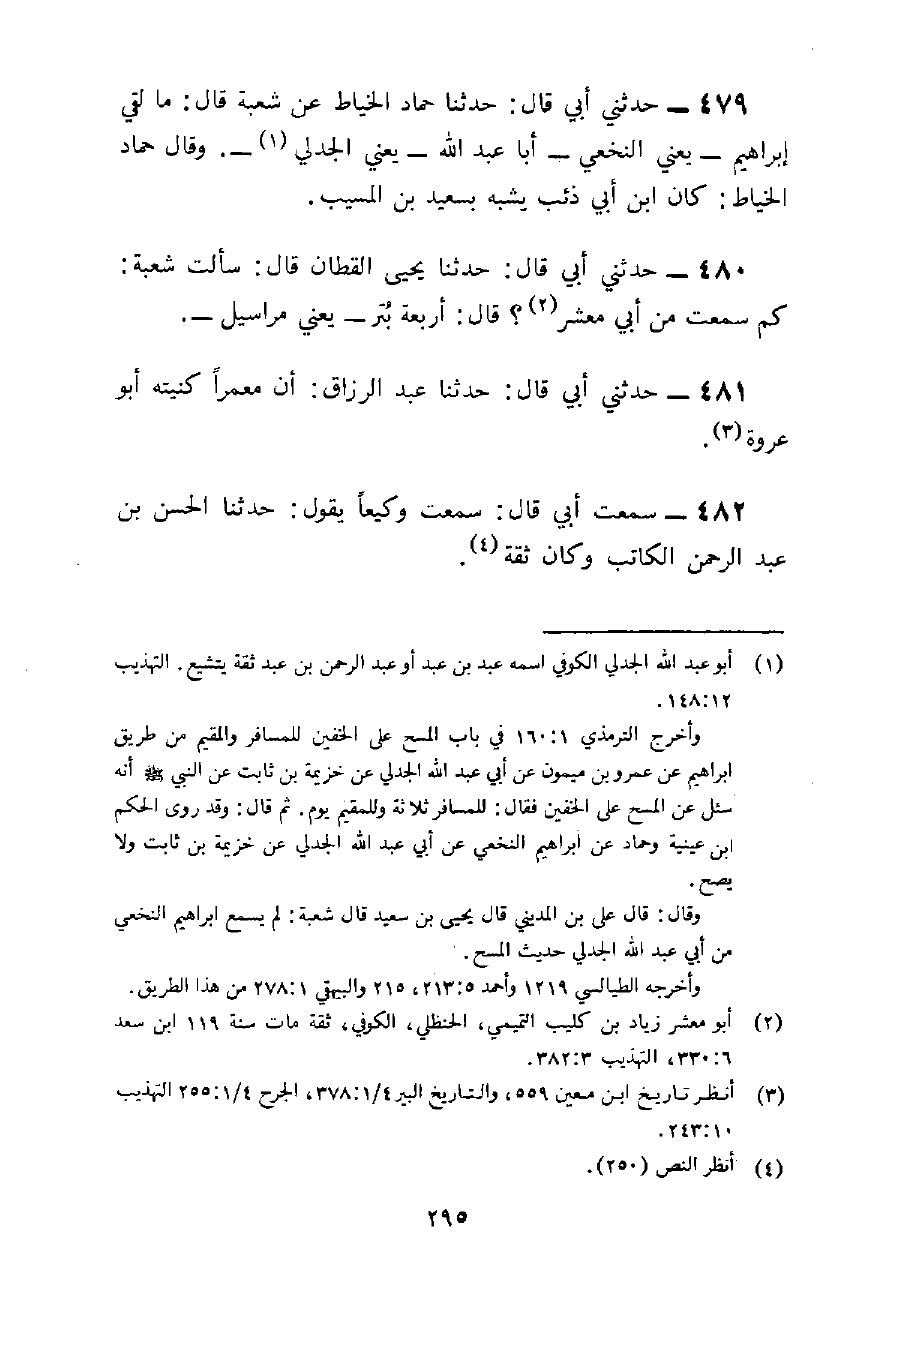 ٤٧٩ — حدثني أبي قال: حدثنا حماد الخياط عن شعبة قال: ما لقي
إبراهيم — يعني النخعي — أبا عبد الله — يعني الجدلي (١) —. وقال حماد
الخياط: كان ابن أبي ذئب يشبه بسعيد بن المسيب.
٤٨٠ — حدثني أبي قال: حدثنا يحيى القطان قال: سألت شعبة:
كم سمعت من أبي معشر (٢)؟ قال: أربعة بُتَر — يعني مراسيل —.
٤٨١ — حدثني أبي قال: حدثنا عبد الرزاق: أن معمراً كنيته أبو
عروة (٣).
٤٨٢ — سمعت أبي قال: سمعت وكيعاً يقول: حدثنا الحسن بن
عبد الرحمن الكاتب وكان ثقة (٤).
(١) أبو عبد الله الجدلي الكوفي اسمه عبد بن عبد أو عبد الرحمن بن عبد ثقة يتشيع. التهذيب
١٤٨:١٢.
وأخرج الترمذي ١٦٠:١ في باب المسح على الخفين للمسافر والمقيم من طريق
ابراهيم عن عمرو بن ميمون عن أبي عبد الله الجدلي عن خزيمة بن ثابت عن النبي ﷺ أنه
سئل عن المسح على الخفين فقال: للمسافر ثلاثة وللمقيم يوم. ثم قال: وقد روى الحكم
ابن عيينة وحماد عن ابراهيم النخعي عن أبي عبد الله الجدلي عن خزيمة بن ثابت ولا
يصح.
وقال: قال علي بن المديني قال يحيى بن سعيد قال شعبة: لم يسمع ابراهيم النخعي
من أبي عبد الله الجدلي حديث المسح.
وأخرجه الطيالسي ١٢١٩ وأحمد ٢١٣:٥، ٢١٥ والبيهقي ٢٧٨:١ من هذا الطريق.
(٢) أبو معشر زياد بن كليب التميمي، الحنظلي، الكوفي، ثقة مات سنة ١١٩ ابن سعد
٣٣٠:٦، التهذيب ٣٨٢:٣.
(٣) أنظر تاريخ ابن معين ٥٥٩، والتاريخ البير ٣٧٨:١/٤، الجرح ٢٥٥:١/٤ التهذيب
٢٤٣:١٠.
(٤) أنظر النص (٢٥٠).
٢٩٥